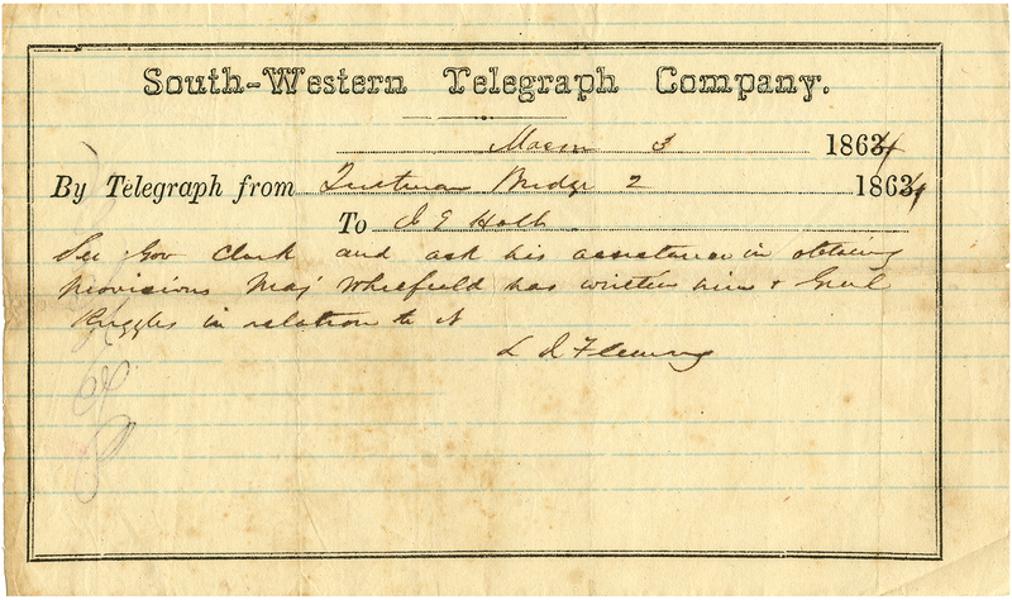 South-Western Telegraph Company.
Macon 3 1864
By Telegraph from Bridge 2 1864
To J E Holt
See Gov Clark and ask his assistance in obtaining
provisions Maj Whitfield has written him & Genl
Ruggles in relation to it
L J Fleming